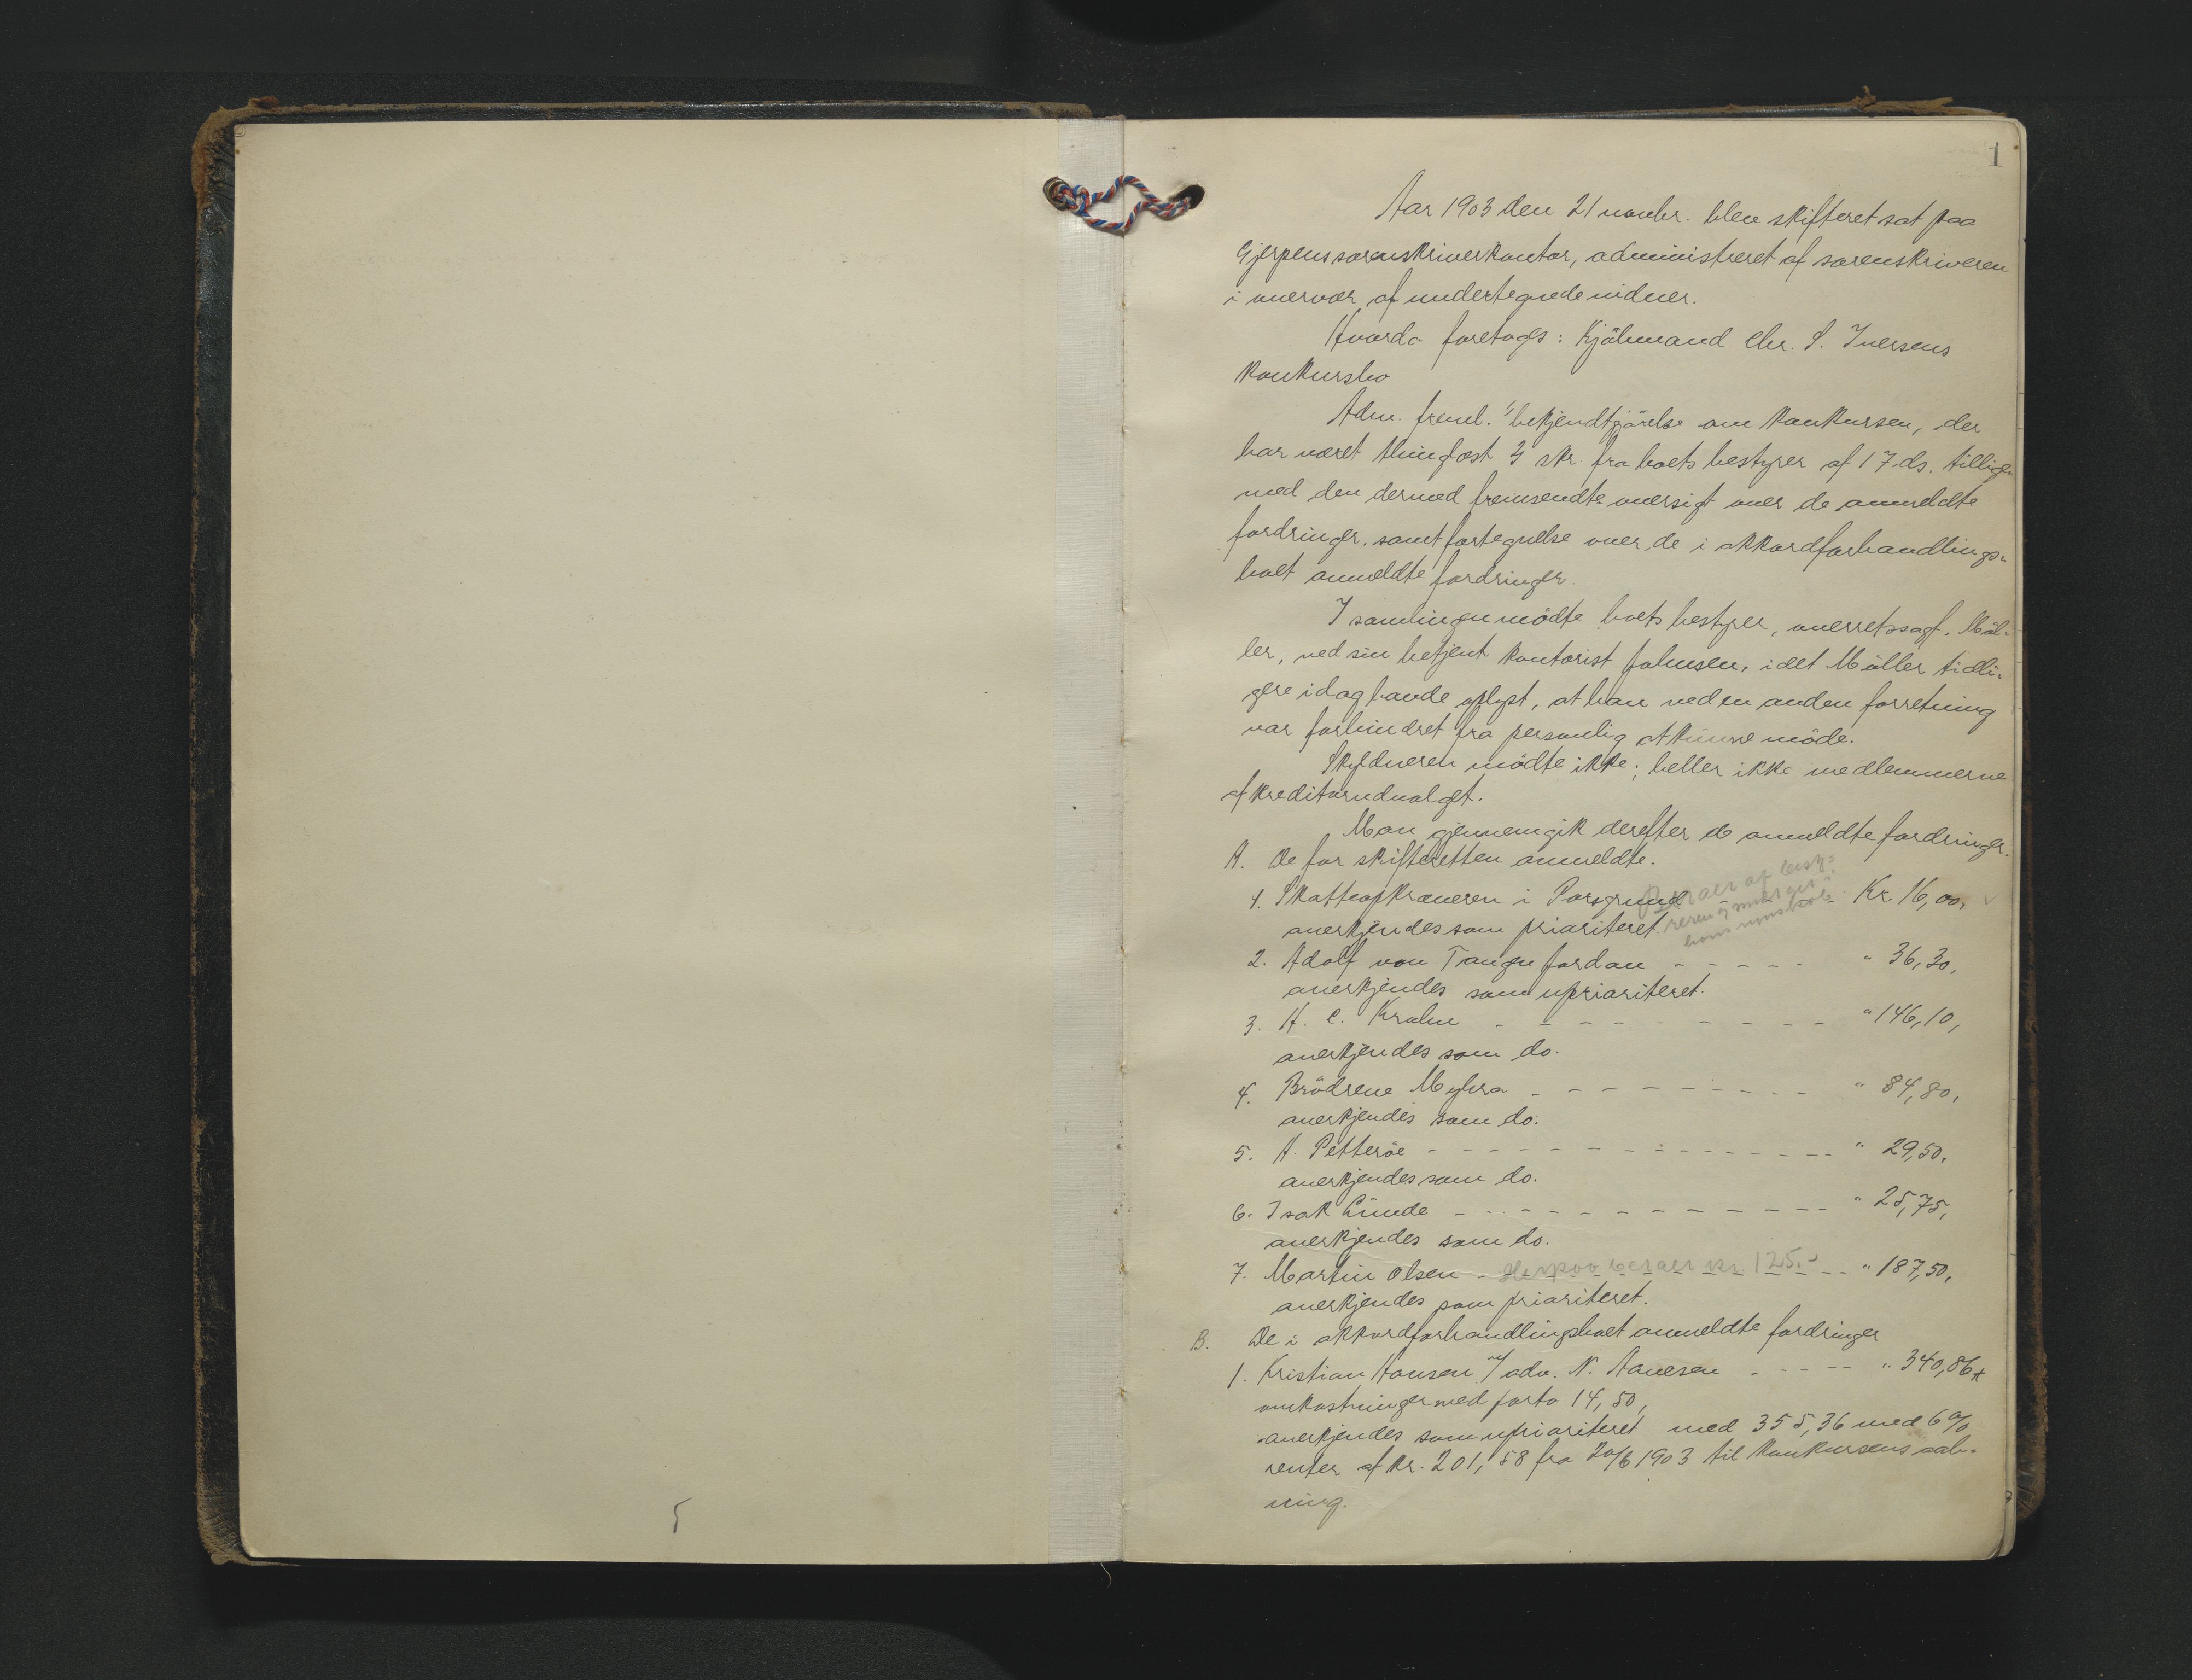 1
Aar 1903 den 21 novbr. blev skifteret sat paa
Gjerpens sorenskriverkontor, administreret af sorenskriveren
i overvær af undertegnede vidner.
Hvorda foretoges: Kjöbmand Chr. S. Iversens
konkursbo
Adm. freml. 1/ bekjendtgjörelse om konkursen, der
har været thinglæst 2/ skr. fra boets bestyrer af 17 ds. tillige
med den dermed fremsendte oversigt over de anmeldte
fordringer, samt fortegnelse over de i akkordforhandlings-
boet anmeldte fordringer.
I samlingen mödte boets bestyrer, overretssagf. Möl-
ler, ved sin betjent kontorist Johnsen, idet Möller tidli-
gere idag havde oplyst, at han ved en anden forretning
var forhindret fra personlig at kunne möde.
Skyldneren mödte ikke; heller ikke medlemmerne
af kreditorudvalget.
Man gjennemgik derefter de anmeldte fordringer.
A. De for skifteretten anmeldte.
1. Skatteopkræveren i Porsgrund - - - - Kr. 16,00,
anerkjendes som prioriteret.
2. Adolf von Tangen Jordan - - - - - " 36,30,
anerkjendes som uprioriteret.
3. H. C. Krohn - - - - - - - - - - " 146,10,
anerkjendes som do.
4. Brödrene Myhra - - - - - - - - - " 84,80,
anerkjendes som do.
5. H. Petteröe - - - - - - - - - - - - - " 29,50,
anerkjendes som do.
6. Isak Linde - - - - - - - - - - - - " 25,75,
anerkjendes som do.
7. Martin Olsen - Herpaa betaler kr. 125.- - - " 187,50,
anerkjendes som prioriteret.
B. De i akkordforhandlingsboet anmeldte fordringer
1. Kristian Hansen v/ adv. N. Aanesen - - - - " 340,86 +
omkostninger med porto 14,50,
anerkjendes som uprioriteret med 355,36 med 6 %
renter af kr. 201,58 fra 20/6 1903 til konkursens aab-
ning.